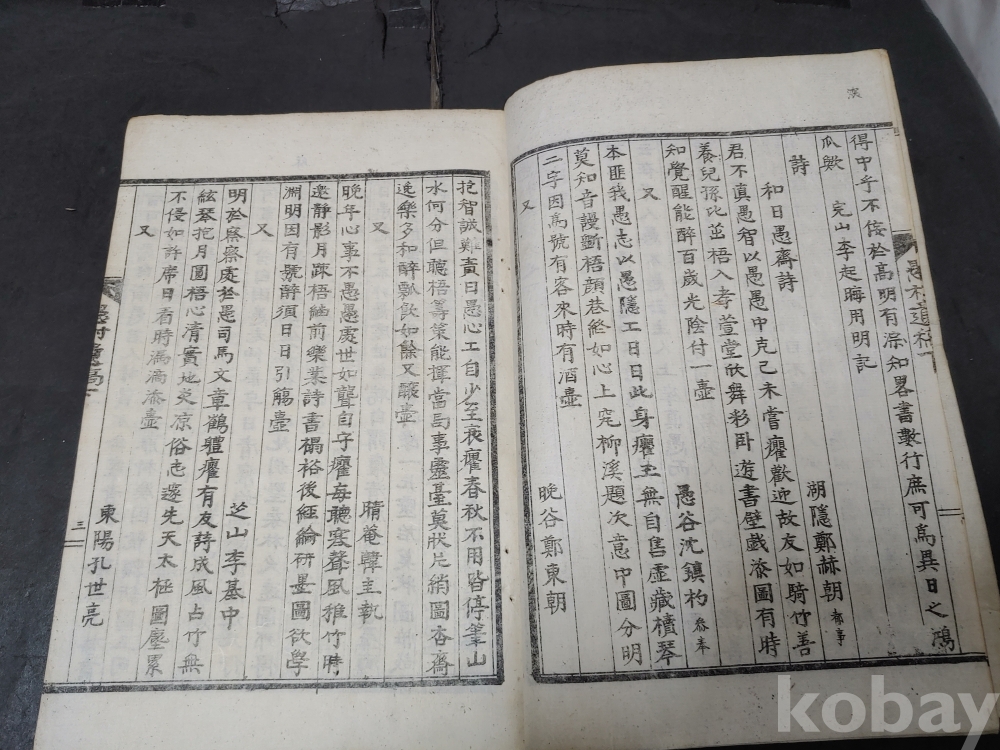 得中乎不佞於高明有深知畧書數行庶可爲異日之鴻
瓜歟 完山李起晦用明記
詩
和日愚齋詩 湖隱鄭赫朝 都事
君不真愚智以愚愚中克己未嘗癯歡迎故友如騎竹善
養兒孫比茁梧入孝萱堂欣舞彩臥遊書壁戱添圖有時
知覺醒能醉百歲光陰付一壺
又 愚谷沈鎮杓 參奉
本匪我愚志以愚隱工日日此身癯玉無自售虛藏櫝琴
莫和音謾斷梧顏巷終如心上究柳溪題次意中圖分明
二字因爲號有客來時有酒壺
又 晚谷鄭東朝
抱智誠難責曰愚心工自少至衰癯春秋不用皆停筆山
水何分但聽梧籌策能揮當局事靈臺莫狀片綃圖杏齋
逸樂多和醉瓢飲如餘又釀壺
又 隋菴韓圭執
晚年心事不愚愚處世如聾自守癯每聽寒聲風推竹時
邀靜影月疎梧緬前樂業詩書榻裕後經綸研墨圖欲學
淵明因有號醉須日日引觴壺
又 芝山李基中
明於察察處於愚司馬文章鶴體癯有友詩成風占竹無
絃琴抱月圖梧心清實地炎凉俗志邃先天太極圖塵累
不侵如許席日看時滿滿添壺
又 東陽孔世亮
三
kobay